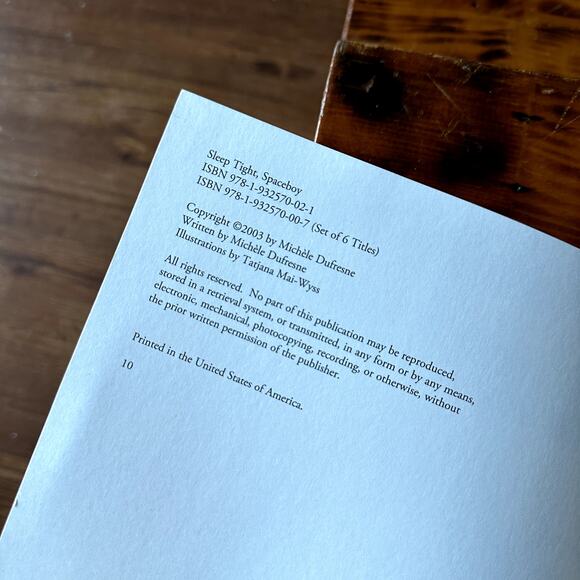 Sleep Tight, Spaceboy
ISBN 978-1-932570-02-1
ISBN 978-1-932570-00-7 (Set of 6 Titles)
Copyright ©2003 by Michèle Dufresne
Written by Michèle Dufresne
Illustrations by Tatjana Mai-Wyss
All rights reserved. No part of this publication may be reproduced,
stored in a retrieval system, or transmitted, in any form or by any means,
electronic, mechanical, photocopying, recording, or otherwise, without
the prior written permission of the publisher.
Printed in the United States of America.
10